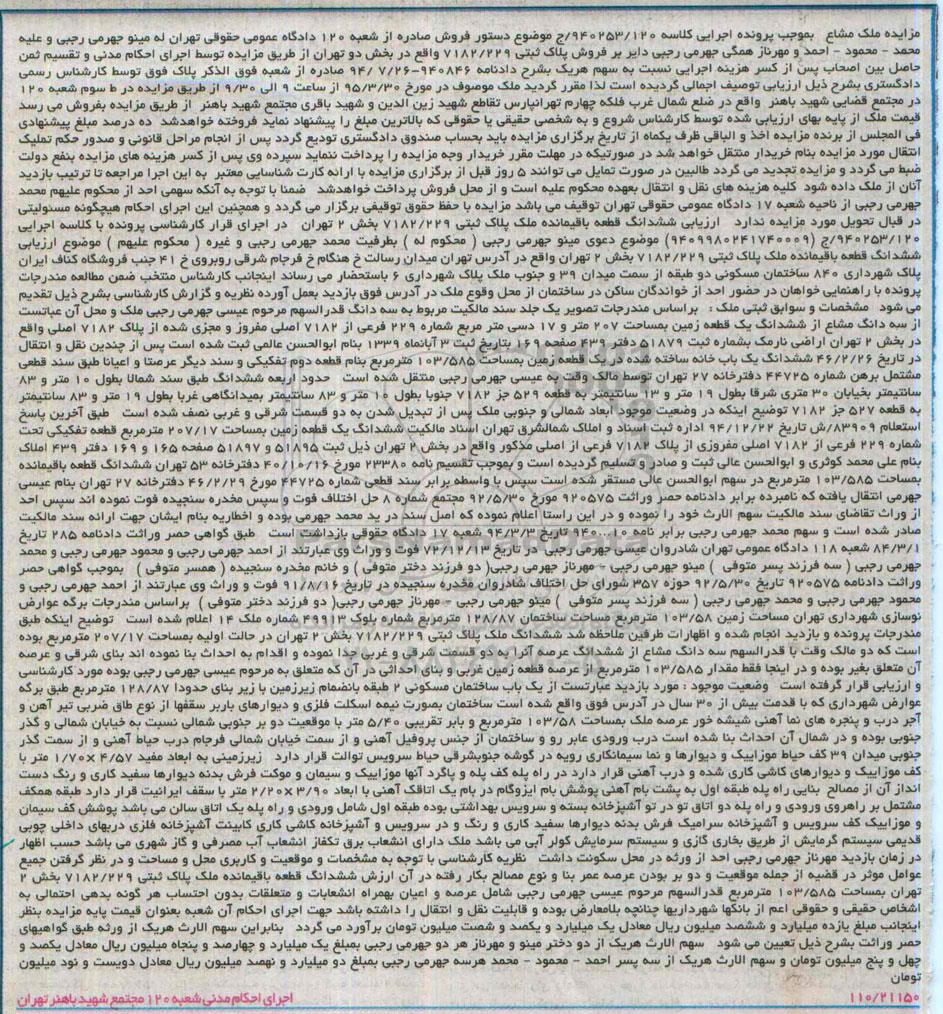 مزایده ملک مشاع   بموجب پرونده اجرایی کلاسه ۹۴۰۲۵۳/۱۲۰/ج موضوع دستور فروش صادره از شعبه ۱۲۰ دادگاه عمومی حقوقی تهران له مینو جهرمی رجبی و علیه
محمد - محمود - احمد و مهرناز همگی جهرمی رجبی دایر بر فروش پلاک ثبتی ۷۱۸۲/۲۲۹ واقع در بخش دو تهران از طریق مزایده توسط اجرای احکام مدنی و تقسیم ثمن
حاصل بین اصحاب پس از کسر هزینه اجرایی نسبت به سهم هریک بشرح دادنامه ۹۴۰۸۴۶-۷/۲۶ /۹۴ صادره از شعبه فوق الذکر پلاک فوق توسط کارشناس رسمی
دادگستری بشرح ذیل ارزیابی توصیف اجمالی گردیده است لذا مقرر گردید ملک موصوف در مورخ ۹۵/۳/۳۰ از ساعت ۹ الی ۹/۳۰ از طریق مزایده در ط سوم شعبه ۱۲۰
در مجتمع قضایی شهید باهنر  واقع در ضلع شمال غرب فلکه چهارم تهرانپارس تقاطع شهید زین الدین و شهید باقری مجتمع شهید باهنر  از طریق مزایده بفروش می رسد
قیمت ملک از پایه بهای ارزیابی شده توسط کارشناس شروع و به شخصی حقیقی یا حقوقی که بالاترین مبلغ را پیشنهاد نماید فروخته خواهدشد  ده درصد مبلغ پیشنهادی
فی المجلس از برنده مزایده اخذ و الباقی ظرف یکماه از تاریخ برگزاری مزایده باید بحساب صندوق دادگستری تودیع گردد پس از انجام مراحل قانونی و صدور حکم تملیک
انتقال مورد مزایده بنام خریدار منتقل خواهد شد در صورتیکه در مهلت مقرر خریدار وجه مزایده را پرداخت ننماید سپرده وی پس از کسر هزینه های مزایده بنفع دولت
ضبط می گردد و مزایده تجدید می گردد طالبین در صورت تمایل می توانند ۵ روز قبل از برگزاری مزایده با ارائه کارت شناسایی معتبر  به این اجرا مراجعه تا ترتیب بازدید
آنان از ملک داده شود  کلیه هزینه های نقل و انتقال بعهده محکوم علیه است و از محل فروش پرداخت خواهدشد   ضمنا با توجه به آنکه سهمی احد از محکوم علیهم محمد
جهرمی رجبی از ناحیه شعبه ۱۷ دادگاه عمومی حقوقی تهران توقیف می باشد مزایده با حفظ حقوق توقیفی برگزار می گردد و همچنین این اجرای احکام هیچگونه مسئولیتی
در قبال تحویل مورد مزایده ندارد   ارزیابی ششدانگ قطعه باقیمانده ملک پلاک ثبتی ۷۱۸۲/۲۲۹ بخش ۲ تهران   در اجرای قرار کارشناسی پرونده با کلاسه اجرایی
۹۴۰۲۵۳/۱۲۰/ج (۹۴۰۹۹۸۰۲۴۱۷۴۰۰۰۹) موضوع دعوی مینو جهرمی رجبی ( محکوم له ) بطرفیت محمد جهرمی رجبی و غیره ( محکوم علیهم ) موضوع ارزیابی
ششدانگ قطعه باقیمانده ملک پلاک ثبتی ۷۱۸۲/۲۲۹ بخش ۲ تهران واقع در آدرس تهران میدان رسالت خ هنگام خ فرجام شرقی روبروی خ ۴۱ جنب فروشگاه کناف ایران
پلاک شهرداری ۸۴۰ ساختمان مسکونی دو طبقه از سمت میدان ۳۹ و جنوب ملک پلاک شهرداری ۶ باستحضار می رساند اینجانب کارشناس منتخب ضمن مطالعه مندرجات
پرونده با راهنمایی خواهان در حضور احد از خواندگان ساکن در ساختمان از محل وقوع ملک در آدرس فوق بازدید بعمل آورده نظریه و گزارش کارشناسی بشرح ذیل تقدیم
می شود   مشخصات و سوابق ثبتی ملک :  براساس مندرجات تصویر یک جلد سند مالکیت مربوط به سه دانگ قدرالسهم مرحوم عیسی جهرمی رجبی ملک و محل آن عباتست
از سه دانگ مشاع از ششدانگ یک قطعه زمین بمساحت ۲۰۷ متر و ۱۷ دسی متر مربع شماره ۲۲۹ فرعی از ۷۱۸۲ اصلی مفروز و مجزی شده از پلاک ۷۱۸۲ اصلی واقع
در بخش ۲ تهران اراضی نارمک بشماره ثبت ۵۱۸۷۹ دفتر ۴۳۹ صفحه ۱۶۹ بتاریخ ثبت ۳ آبانماه ۱۳۳۹ بنام ابوالحسن عالمی ثبت شده است پس از چندین نقل و انتقال
در تاریخ ۴۶/۲/۲۶ ششدانگ یک باب خانه ساخته شده در یک قطعه زمین بمساحت ۱۰۳/۵۸۵ مترمربع بنام قطعه دوم تفکیکی و سند دیگر عرصتا و اعیانا طبق سند قطعی
مشتمل برهن شماره ۴۴۷۲۵ دفترخانه ۲۷ تهران توسط مالک وقت به عیسی جهرمی رجبی منتقل شده است   حدود اربعه ششدانگ طبق سند شمالا بطول ۱۰ متر و ۸۳
سانتیمتر بخیابان ۳۰ متری شرقا بطول ۱۹ متر و ۱۳ سانتیمتر به قطعه ۵۲۹ جز ۷۱۸۲ جنوبا بطول ۱۰ متر و ۸۳ سانتیمتر بمیدانگاهی غربا بطول ۱۹ متر و ۸۳ سانتیمتر
به قطعه ۵۲۷ جز ۷۱۸۲ توضیح اینکه در وضعیت موجود ابعاد شمالی و جنوبی ملک پس از تبدیل شدن به دو قسمت شرقی و غربی نصف شده است   طبق آخرین پاسخ
استعلام ۸۳۹۰۹/ش تاریخ ۹۴/۱۲/۲۲ اداره ثبت اسناد و املاک شمالشرق تهران اسناد مالکیت ششدانگ یک قطعه زمین بمساحت ۲۰۷/۱۷ مترمربع قطعه تفکیکی تحت
شماره ۲۲۹ فرعی از ۷۱۸۲ اصلی مفروزی از پلاک ۷۱۸۲ فرعی از اصلی مذکور واقع در بخش ۲ تهران ذیل ثبت ۵۱۸۹۵ و ۵۱۸۹۷ صفحه ۱۶۵ و ۱۶۹ دفتر ۴۳۹ املاک
بنام علی محمد کوثری و ابوالحسن عالی ثبت و صادر و تسلیم گردیده است و بموجب تقسیم نامه ۲۳۳۸۰ مورخ ۴۰/۱۰/۱۶ دفترخانه ۵۳ تهران ششدانگ قطعه باقیمانده
بمساحت ۱۰۳/۵۸۵ مترمربع در سهم ابوالحسن عالی مستقر شده است سپس با واسطه برابر سند قطعی شماره ۴۴۷۲۵ مورخ ۴۶/۲/۲۹ دفترخانه ۲۷ تهران بنام عیسی
جهرمی انتقال یافته که نامبرده برابر دادنامه حصر وراثت ۹۲۰۵۷۵ مورخ ۹۲/۵/۳۰ مجتمع شماره ۸ حل اختلاف فوت و سپس مخدره سنجیده فوت نموده اند سپس احد
از وراث تقاضای سند مالکیت سهم الارث خود را نموده و در این راستا اعلام نموده که اصل سند در ید محمد جهرمی بوده و اخطاریه بنام ایشان جهت ارائه سند مالکیت
صادر شده است و سهم محمد جهرمی رجبی برابر نامه ۹۴۰۰۱۰ تاریخ ۹۴/۳/۳ شعبه ۱۷ دادگاه حقوقی بازداشت است   طبق گواهی حصر وراثت دادنامه ۲۸۵ تاریخ
۸۴/۳/۱ شعبه ۱۱۸ دادگاه عمومی تهران شادروان عیسی جهرمی رجبی در تاریخ ۷۲/۱۲/۱۳ فوت و وراث وی عبارتند از احمد جهرمی رجبی و محمود جهرمی رجبی و محمد
جهرمی رجبی ( سه فرزند پسر متوفی  ) مینو جهرمی رجبی - مهرناز جهرمی رجبی( دو فرزند دختر متوفی ) و خانم مخدره سنجیده ( همسر متوفی )   بموجب گواهی حصر
وراثت دادنامه ۹۲۰۵۷۵ تاریخ ۹۲/۵/۳۰ حوزه ۳۵۷ شورای حل اختلاف شادروان مخدره سنجیده در تاریخ ۹۱/۸/۱۶ فوت و وراث وی عبارتند از احمد جهرمی رجبی و
محمود جهرمی رجبی و محمد جهرمی رجبی ( سه فرزند پسر متوفی  ) مینو جهرمی رجبی - مهرناز جهرمی رجبی( دو فرزند دختر متوفی )  براساس مندرجات برگه عوارض
نوسازی شهرداری تهران مساحت زمین ۱۰۳/۵۸ مترمربع مساحت ساختمان ۱۲۸/۸۷ مترمربع شماره بلوک ۴۹۹۱۳ شماره ملک ۱۴ اعلام شده است   توضیح اینکه طبق
مندرجات پرونده و بازدید انجام شده و اظهارات طرفین ملاحظه شد ششدانگ ملک پلاک ثبتی ۷۱۸۲/۲۲۹ بخش ۲ تهران در حالت اولیه بمساحت ۲۰۷/۱۷ مترمربع بوده
است که دو مالک وقت با قدرالسهم سه دانگ مشاع از ششدانگ عرصه آنرا به دو قسمت شرقی و غربی جدا نموده و اقدام به احداث بنا نموده اند بنای شرقی و عرصه
آن متعلق بغیر بوده و در اینجا فقط مقدار ۱۰۳/۵۸۵ مترمربع از عرصه قطعه زمین غربی و بنای احداثی در آن که متعلق به مرحوم عیسی جهرمی رجبی بوده مورد کارشناسی
و ارزیابی قرار گرفته است   وضعیت موجود : مورد بازدید عبارتست از یک باب ساختمان مسکونی ۲ طبقه بانضمام زیرزمین با زیر بنای حدودا ۱۲۸/۸۷ مترمربع طبق برگه
عوارض شهرداری که با قدمت بیش از ۳۰ سال در آدرس فوق واقع شده است ساختمان بصورت نیمه اسکلت فلزی و دیوارهای باربر سقفها از نوع طاق ضربی تیر آهن و
آجر درب و پنجره های نما آهنی شیشه خور عرصه ملک بمساحت ۱۰۳/۵۸ مترمربع و بابر تقریبی ۵/۴۰ متر با موقعیت دو بر جنوبی شمالی نسبت به خیابان شمالی و گذر
جنوبی بوده و در شمال آن احداث بنا شده است درب ورودی عابر رو و ساختمان از جنس پروفیل آهنی و از سمت خیابان شمالی فرجام درب حیاط آهنی و از سمت گذر
جنوبی میدان ۳۹ کف حیاط موزاییک و دیوارها و نما سیمانکاری رویه در گوشه جنوبشرقی حیاط سرویس توالت قرار دارد   زیرزمینی به ابعاد مفید ۴/۵۷ ×۱/۷۰ متر با
کف موزاییک و دیوارهای کاشی کاری شده و درب آهنی قرار دارد در راه پله کف پله و پاگرد آنها موزاییک و سیمان و موکت فرش بدنه دیوارها سفید کاری و رنگ دست
انداز آن از مصالح  بنایی راه پله طبقه اول به پشت بام آهنی پوشش بام ایزوگام در بام یک اتاقک آهنی با ابعاد ۳/۹۰ ×۲/۲۰ متر با سقف ایرانیت قرار دارد طبقه همکف
مشتمل بر راهروی ورودی و راه پله دو اتاق تو در تو آشپزخانه بسته و سرویس بهداشتی بوده طبقه اول شامل ورودی و راه پله یک اتاق سالن می باشد پوشش کف سیمان
و موزاییک کف سرویس و آشپزخانه سرامیک فرش بدنه دیوارها سفید کاری و رنگ و در سرویس و آشپزخانه کاشی کاری کابینت آشپزخانه فلزی دربهای داخلی چوبی
قدیمی سیستم گرمایش از طریق بخاری گازی و سیستم سرمایش کولر آبی می باشد ملک دارای انشعاب برق تکفاز انشعاب آب مصرفی و گاز شهری می باشد حسب اظهار
در زمان بازدید مهرناز جهرمی رجبی احد از ورثه در محل سکونت داشت   نظریه کارشناسی با توجه به مشخصات و موقعیت و کاربری محل و مساحت و در نظر گرفتن جمیع
عوامل موثر در قضیه از جمله موقعیت و دو بر بودن عرصه عمر بنا و نوع مصالح بکار رفته در آن ارزش ششدانگ قطعه باقیمانده ملک پلاک ثبتی ۷۱۸۲/۲۲۹ بخش ۲
تهران بمساحت ۱۰۳/۵۸۵ مترمربع قدرالسهم مرحوم عیسی جهرمی رجبی شامل عرصه و اعیان بهمراه انشعابات و متعلقات بدون احتساب هر گونه بدهی احتمالی به
اشخاص حقیقی و حقوقی اعم از بانکها شهرداریها چنانچه بلامعارض بوده و قابلیت نقل و انتقال را داشته باشد جهت اجرای احکام آن شعبه بعنوان قیمت پایه مزایده بنظر
اینجانب مبلغ یازده میلیارد و ششصد میلیون ریال معادل یک میلیارد و یکصد و شصت میلیون تومان برآورد می گردد   بنابراین سهم الارث هریک از ورثه طبق گواهیهای
حصر وراثت بشرح ذیل تعیین می شود   سهم الارث هریک از دو دختر مینو و مهرناز هر دو جهرمی رجبی بمبلغ یک میلیارد و چهارصد و پنجاه میلیون ریال معادل یکصد و
چهل و پنج میلیون تومان و سهم الارث هریک از سه پسر احمد - محمود - محمد هرسه جهرمی رجبی بمبلغ دو میلیارد و نهصد میلیون ریال معادل دویست و نود میلیون
تومان
۱۱۰/۲۱۱۵۰   اجرای احکام مدنی شعبه ۱۲۰ مجتمع شهید باهنر تهران